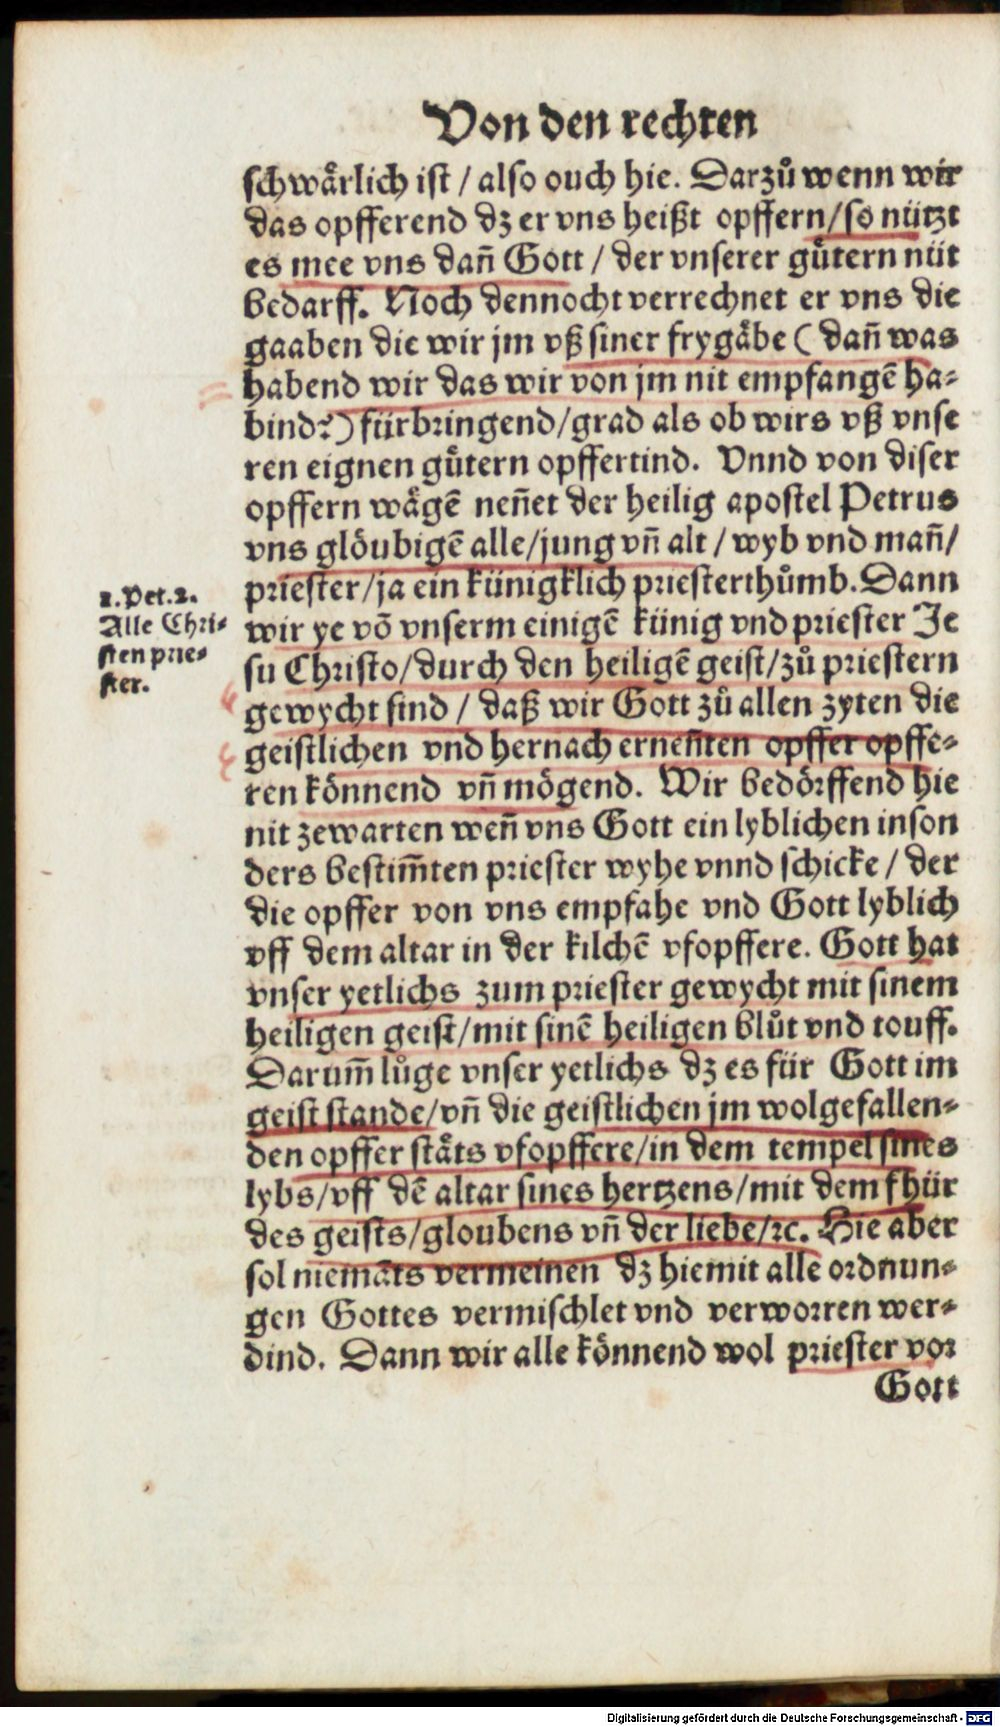 Von den rechten
schwaͤrlich ist / also ouch hie. Darzuͦ wenn wir
das opfferend dz er vns heißt opffern/so nützt
es mee vns dañ Gott / der vnserer guͤtern nüt
bedarff. Noch dennocht verrechnet er vns die
gaaben die wir jm vß siner frygaͤbe ( dañ was
habend wir das wir von jm nit empfangẽ ha⸗
bind?) fürbringend/grad als ob wirs vß vnse
ren eignen guͤtern opffertind. Vnnd von diser
opffern waͤgẽ neñet der heilig apostel Petrus
vns gloͤubigẽ alle/jung vñ alt / wyb vnd mañ/
priester/ja ein künigklich priesterthuͦmb. Dann
1. Pet. 2.
Alle Chri⸗
sten prie⸗
ster.
wir ye võ vnserm einigẽ künig vnd priester Je
su Christo/durch den heiligẽ geist/zuͦ priestern
gewycht sind / daß wir Gott zuͦ allen zyten die
geistlichen vnd hernach erneñten opffer opffe⸗
ren koͤnnend vñ moͤgend. Wir bedoͤrffend hie
nit zewarten weñ vns Gott ein lyblichen inson
ders bestim̃ten priester wyhe vnnd schicke / der
die opffer von vns empfahe vnd Gott lyblich
vff dem altar in der kilchẽ vfopffere. Gott hat
vnser yetlichs zum priester gewycht mit sinem
heiligen geist/mit sinẽ heiligen bluͦt vnd touff.
Darum̃ luͦge vnser yetlichs dz es für Gott im
geist stande/vñ die geistlichen jm wolgefallen⸗
den opffer staͤts vfopffere/in dem tempel sines
lybs/vff dẽ altar sines hertzens/mit dem fhür
des geists/gloubens vñ der liebe/ꝛc. Hie aber
sol niemãts vermeinen dz hiemit alle ordnun⸗
gen Gottes vermischlet vnd verworren wer⸗
dind. Dann wir alle koͤnnend wol priester vor
Gott
Digitalisierung gefördert durch die Deutsche Forschungsgemeinschaft - DFG